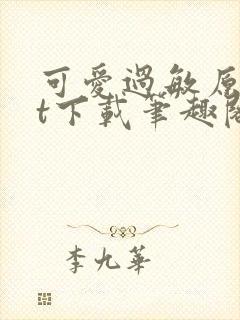 可愛過敏原
t下載筆趣閣
李九華